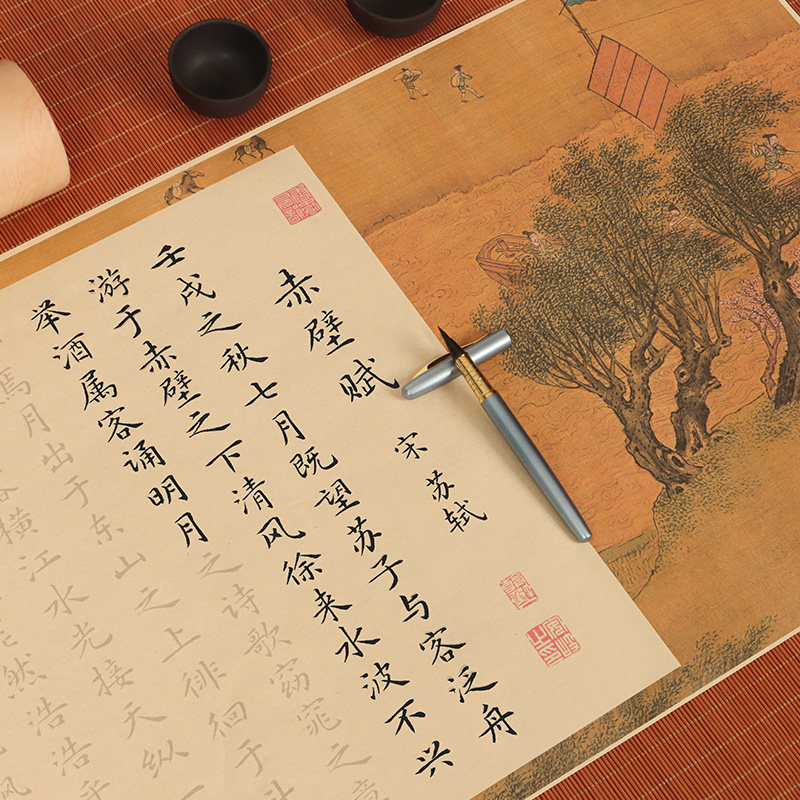 赤壁赋 宋 苏轼
壬戌之秋七月既望苏子与客泛舟
游于赤壁之下清风徐来水波不兴
举酒属客诵明月之诗歌窈窕之章
焉月出于东山之上徘徊于斗
横江水光接天纵
茫然浩浩乎
风